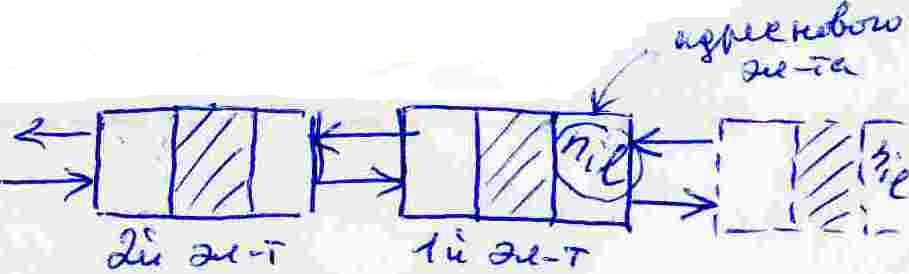 адрес нового
эл-та
nil
nil
2й эл-т
1й эл-т